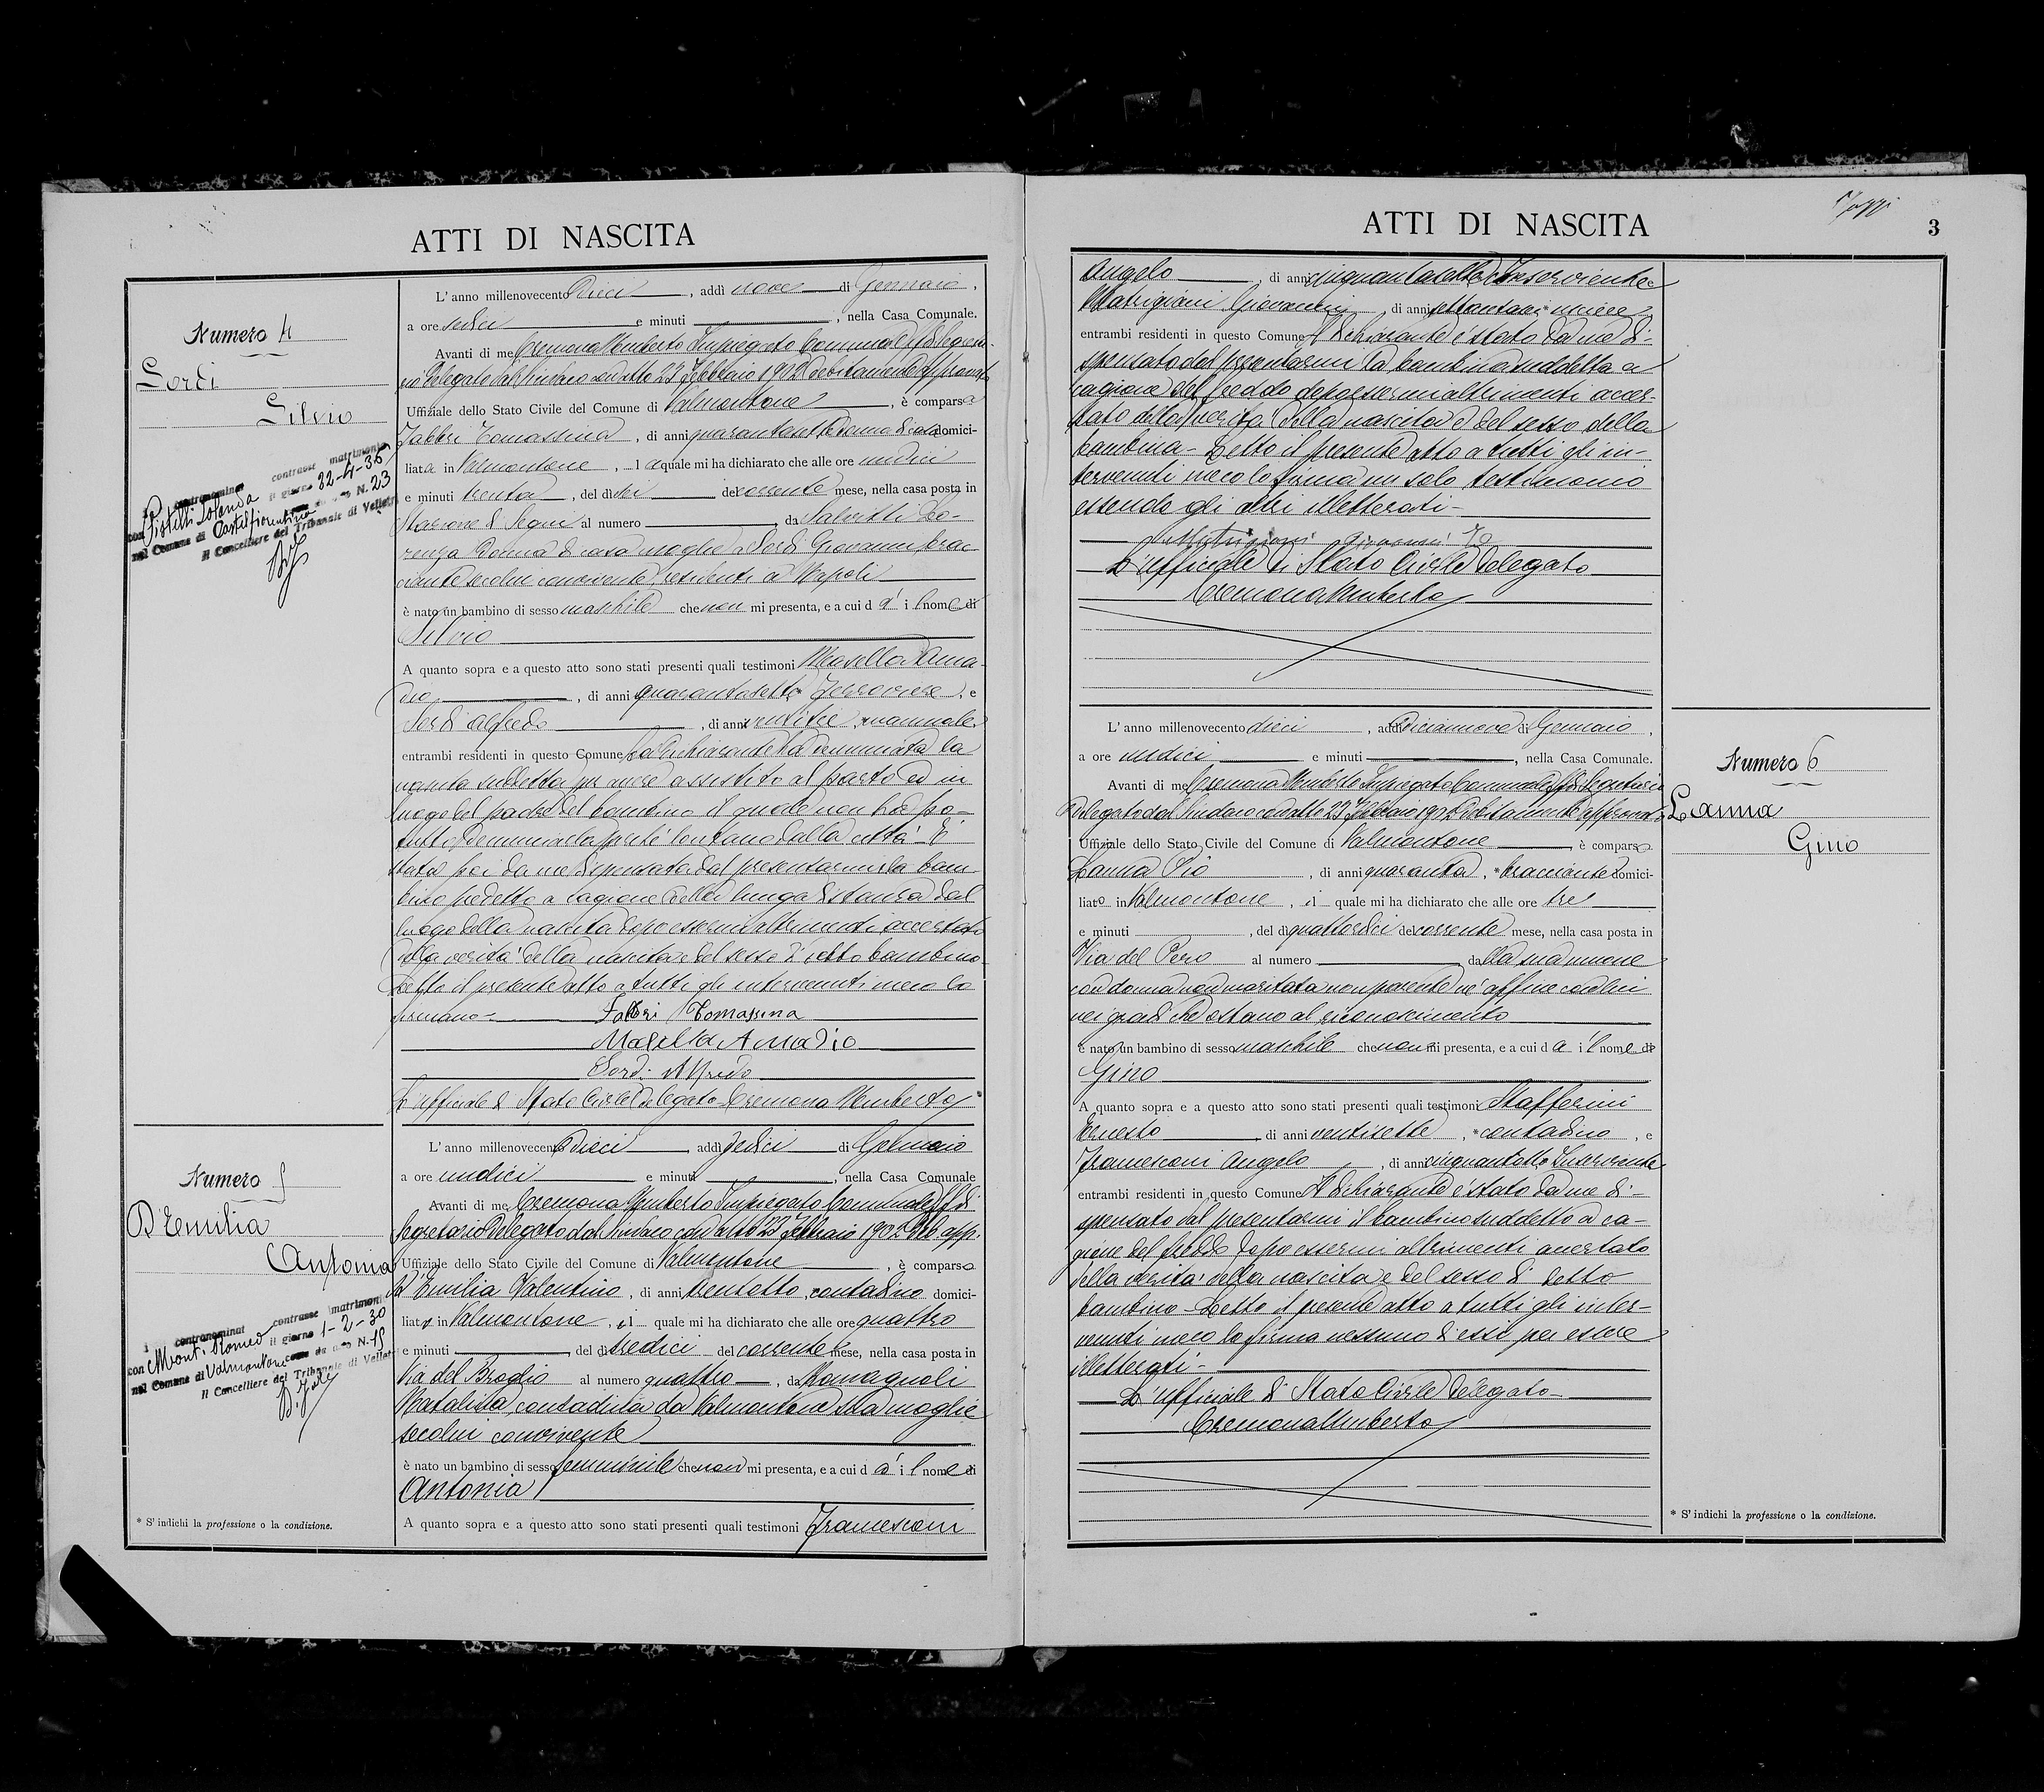 ATTI DI NASCITA
Numero 4
Sordi
Silvio
contronominat contrasse matrimonio
con Pistelli Iolanda il giorno 22-4-35
nel Comune di Castelfiorentino come da atto N. 23
Il Cancelliere del Tribunale di Velletri
L'anno millenovecento Dieci, addì nove di Gennaio,
a ore sedici e minuti, nella Casa Comunale.
Avanti di me Cremona Umberto Impiegato Comunale ff di Segreta-
rio Delegato dal Sindaco con atto 23 Febbraio 1902 debitamente approvato
Uffiziale dello Stato Civile del Comune di Valmontone, è comparsa
Fabbri Tomassina, di anni quarantasette donna di casa domici-
liata in Valmontone, la quale mi ha dichiarato che alle ore undici
e minuti trenta, del dì sei del corrente mese, nella casa posta in
Stazione di Segni al numero da Salvitti Lo-
renza Donna di casa moglie a Sordi Giovanni, brac-
ciante secolui convivente, residenti a Napoli
è nato un bambino di sesso maschile che non mi presenta, e a cui dà il nome di
Silvio
A quanto sopra e a questo atto sono stati presenti quali testimoni Masella Ama-
dio, di anni quarantasette Ferroviere, e
Sordi Alfredo, di anni manuale
entrambi residenti in questo Comune. La dichiarante ha denunciata la
nascita suddetta per avere assistito al parto ed in
luogo del padre del bambino il quale non ha po-
tuto denunciarla perché lontano dalla città. È
stata poi da me dispensata dal presentarmi la bam
bino predetto a cagione della lunga distanza dal
luogo della nascita dopo essermi altrimenti accertato
della verità della nascita e del sesso di detto bambino
Letto il presente atto a tutti gli intervenuti meco lo
firmano-
Fabbri Tomassina
Masella Amadio
Sordi Alfredo
L'ufficiale di Stato Civile Delegato Cremona Umberto
Numero 5
D'Emilia
Antonia
contronominat contrasse matrimoni
con Monti Romeo il giorno 1-2-30
nel Comune di Valmontone come da atto N. 15
Il Cancelliere del Tribunale di Velletri
L'anno millenovecento Dieci, addì Sedici di Gennaio
a ore undici e minuti, nella Casa Comunale
Avanti di me Cremona Umberto Impiegato Comunale ff di
Segretario Delegato dal Sindaco con atto 23 Febbraio 1902 deb. app.
Uffiziale dello Stato Civile del Comune di Valmontone, è comparso
D'Emilia Valentino, di anni trentotto, contadino domici-
liato in Valmontone, il quale mi ha dichiarato che alle ore quattro
e minuti, del dì tredici del corrente mese, nella casa posta in
Via del Broglio al numero quattro, da Romagnoli
Natalina, contadina da Valmontone sua moglie
secolui convivente
è nato un bambino di sesso femminile che non mi presenta, e a cui dà il nome di
Antonia
A quanto sopra e a questo atto sono stati presenti quali testimoni Francesconi
* S'indichi la professione o la condizione.
ATTI DI NASCITA
3
Angelo, di anni cinquantasette Inserviente e
Matrigiani Giovanni, di anni
entrambi residenti in questo Comune. Il dichiarante è stato da me di-
spensato dal presentarmi la bambina suddetta a
cagione del freddo dopo essermi altrimenti accer-
tato della verità della nascita e del sesso della
bambina- Letto il presente atto a tutti gli in-
tervenuti meco lo firma un solo testimonio
essendo gli altri illetterati-
Matrigiani Giovanni
L'ufficiale di Stato Civile Delegato
Cremona Umberto
L'anno millenovecento dieci, addì Diciannove di Gennaio,
a ore undici e minuti, nella Casa Comunale.
Avanti di me Cremona Umberto Impiegato Comunale ff di Segretario
Delegato dal Sindaco con atto 23 Febbraio 1902 debitamente approvato
Uffiziale dello Stato Civile del Comune di Valmontone, è comparso
Lanna Pio, di anni quaranta, * bracciante domici-
liato in Valmontone, il quale mi ha dichiarato che alle ore tre
e minuti, del dì quattordici del corrente mese, nella casa posta in
Via del Pero al numero dalla sua unione
con donna non maritata non parente nè affine con lui
nei gradi che ostano al riconoscimento
è nato un bambino di sesso maschile che non mi presenta, e a cui dà il nome di
Gino
A quanto sopra e a questo atto sono stati presenti quali testimoni Stafferini
Ernesto, di anni ventisette, * contadino, e
Francesconi Angelo, di anni cinquantotto Inserviente
entrambi residenti in questo Comune. Il dichiarante è stato da me di-
spensato dal presentarmi il bambino suddetto a ca-
gione del freddo dopo essermi altrimenti accertato
della verità della nascita e del sesso di detto
bambino- Letto il presente atto a tutti gli inter-
venuti meco lo firma nessuno di essi per essere
illetterati-
L'ufficiale di Stato Civile Delegato
Cremona Umberto
Numero 6
Lanna
Gino
* S'indichi la professione o la condizione.